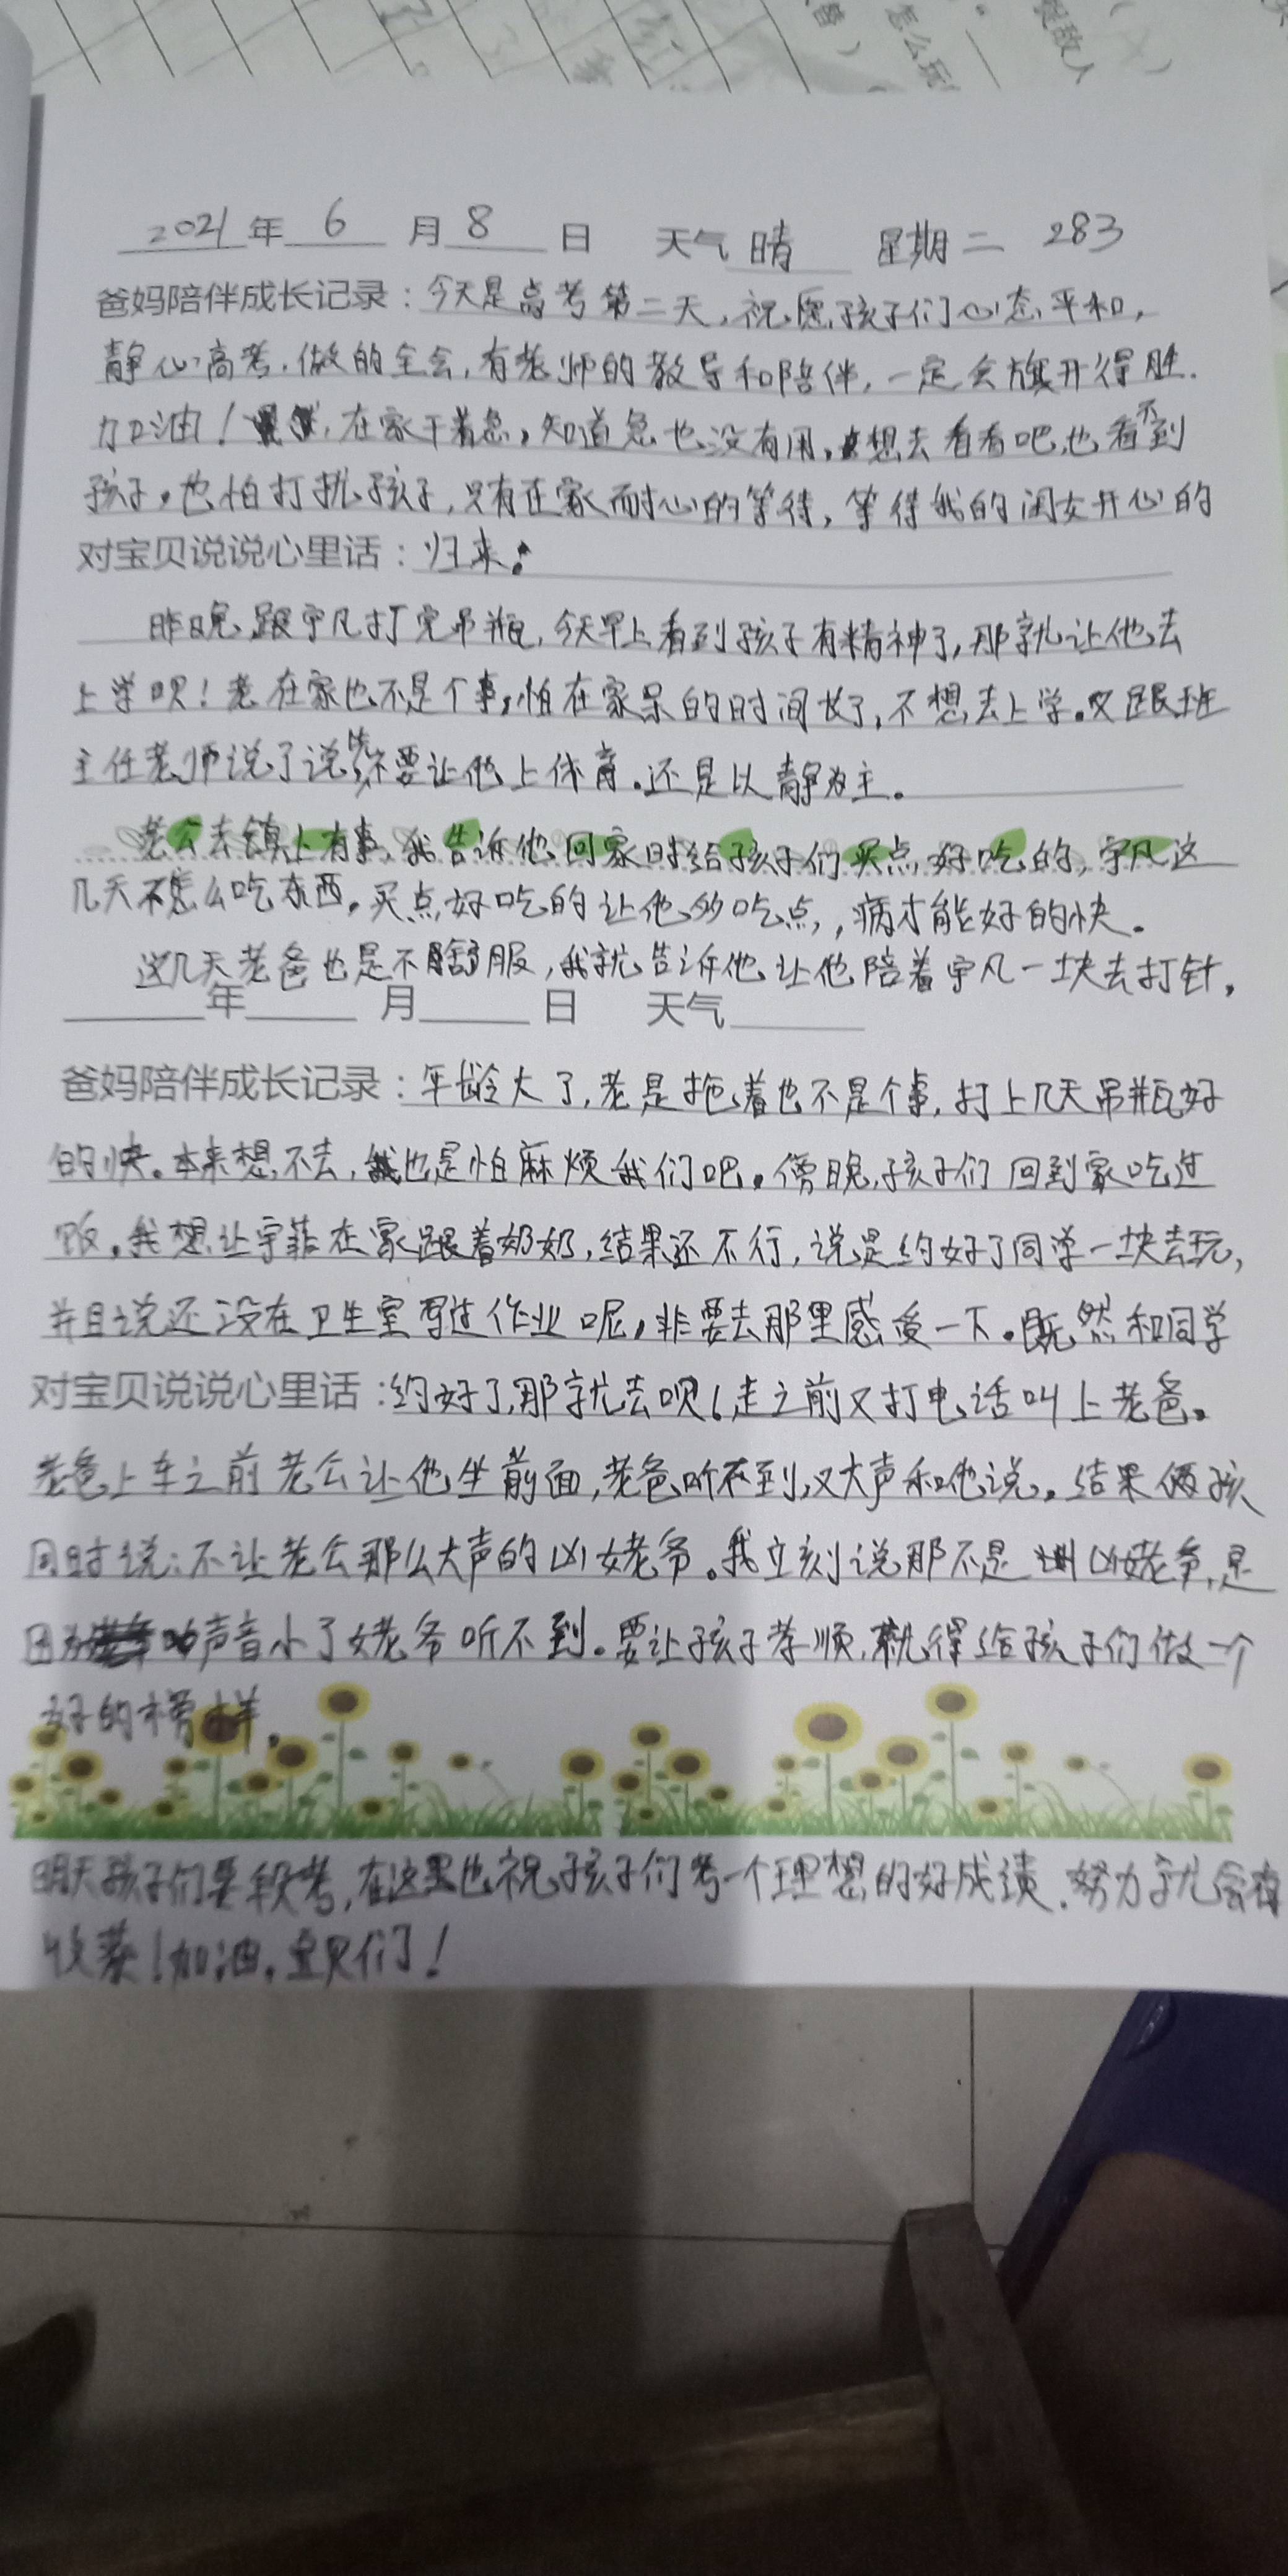 2021年 6 月 8 日 天气 晴 星期二 283
爸妈陪伴成长记录：今天是高考第二天，祝愿孩子们心态平和，
静心高考，做的全会，有老师的教导和陪伴，一定会旗开得胜.
加油！在家干着急，知道急也没有用，想去看看吧，也看不到
孩子，也怕打扰孩子，只有在家耐心的等待，等待我的闺女开心的
对宝贝说说心里话：归来。
昨晚，跟宇凡打完吊瓶，今天早上看到孩子有精神了，那就让他去
上学呗！老在家也不是个事，怕在家呆的时间长了，不想去上学。又跟班
主任老师说了说，先不要让他上体育。还是以静为主。
老公去镇上有事，我告诉他回家时给孩子们买点好吃的，宇凡这
几天不怎么吃东西。买点好吃的让他多吃点，，病才能好的快。
这几天老爸也是不舒服，我就告诉他让他陪着宇凡一块去打针，
年 月 日 天气
爸妈陪伴成长记录：年龄大了，老是拖着也不是个事，打上几天吊瓶好
的快。本来想不去，也是怕麻烦我们吧。傍晚，孩子们回到家吃过
饭。我想让宇菲在家跟着奶奶，结果还不行，说是约好了同学一块去玩，
并且说还没在卫生室写过作业呢，非要去那里感受一下。既然和同学
对宝贝说说心里话：约好了，那就去呗！走之前又打电话叫上老爸。
老爸上车之前老公让他坐前面，老爸听不到，又大声和他说。结果俩孩
同时说：不让老公那么大声的凶姥爷。我立刻说那不是凶姥爷，是
因为声音小了姥爷听不到。要让孩子孝顺，就得给孩子们做一个
好的榜样。
明天孩子们要段考，在这里也祝孩子们考一个理想的好成绩．努力就会有
收获！加油，宝贝们！